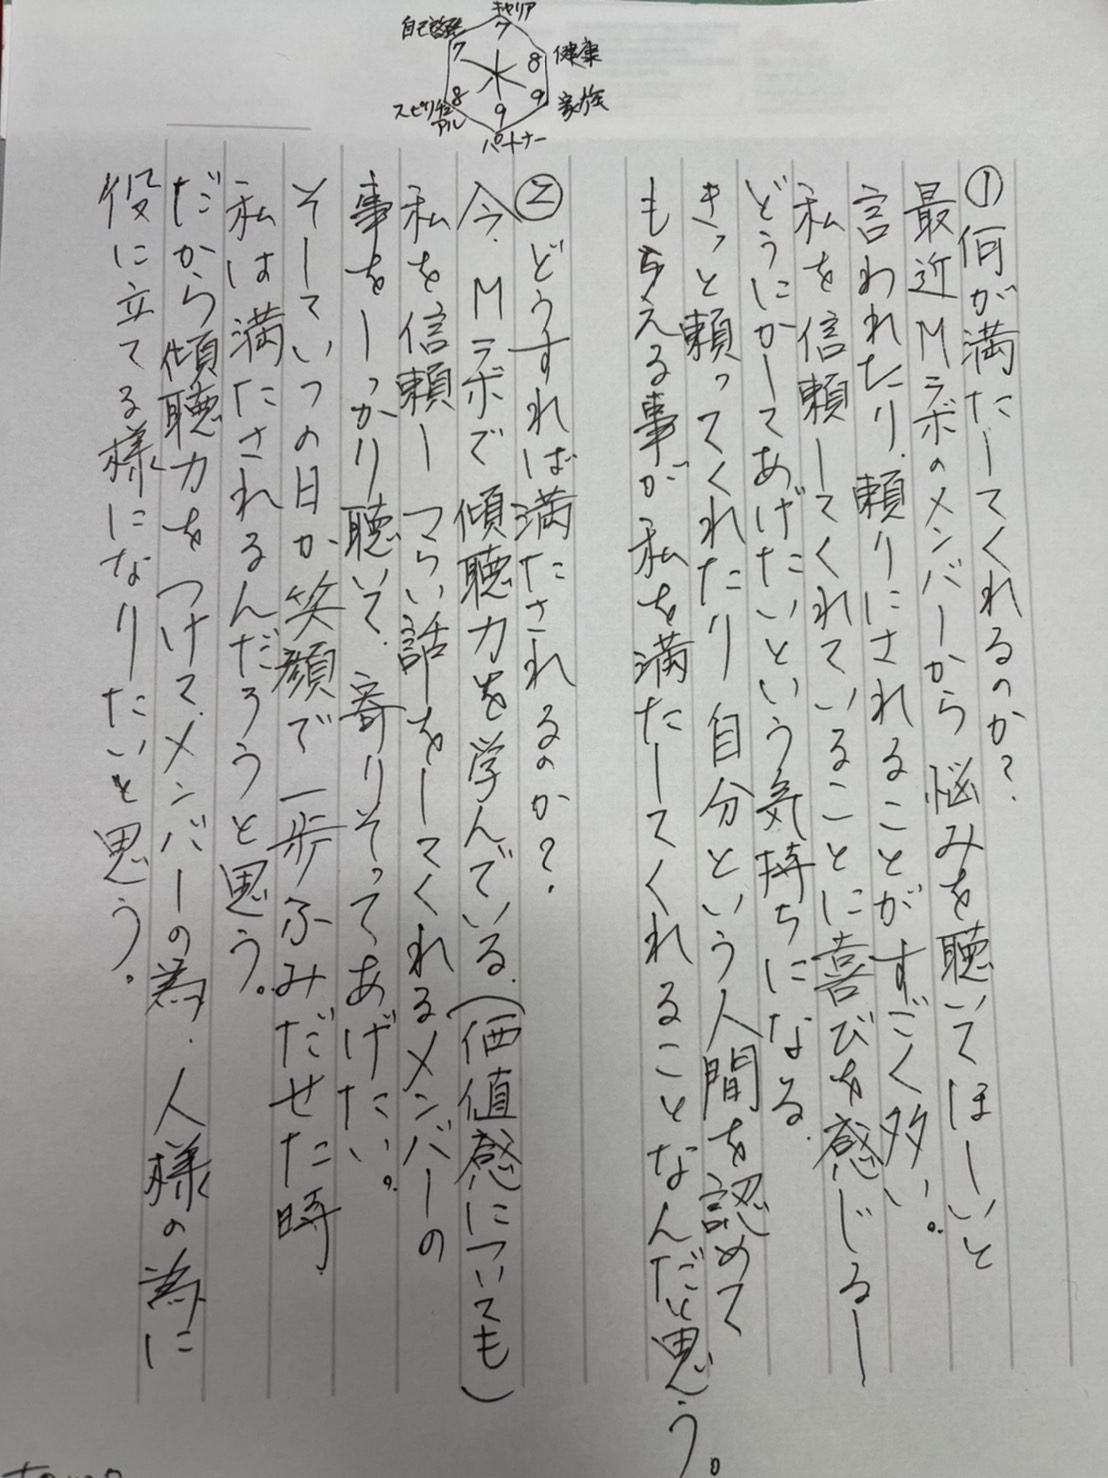 キャリア
7
自己啓発
7
健康
8
家族
9
パートナー
9
スピリチュアル
8
①何が満たしてくれるのか?
最近Mラボのメンバーから悩みを聴いてほしいと
言われたり、頼りにされることがすごく多い。
私を信頼してくれていることに喜びを感じるし
どうにかしてあげたいという気持ちになる。
きっと頼ってくれたり自分という人間を認めて
もらえる事が私を満たしてくれることなんだと思う。
②どうすれば満たされるのか?
今、Mラボで傾聴力を学んでいる。(価値感についても)
私を信頼しつらい話しをしてくれるメンバーの
事をしっかり聴いて、寄りそってあげたい。
そしていつの日か笑顔で一歩ふみだせた時
私は満たされるんだろうと思う。
だから傾聴力をつけて、メンバーの為、人様の為に
役に立てる様になりたいと思う。